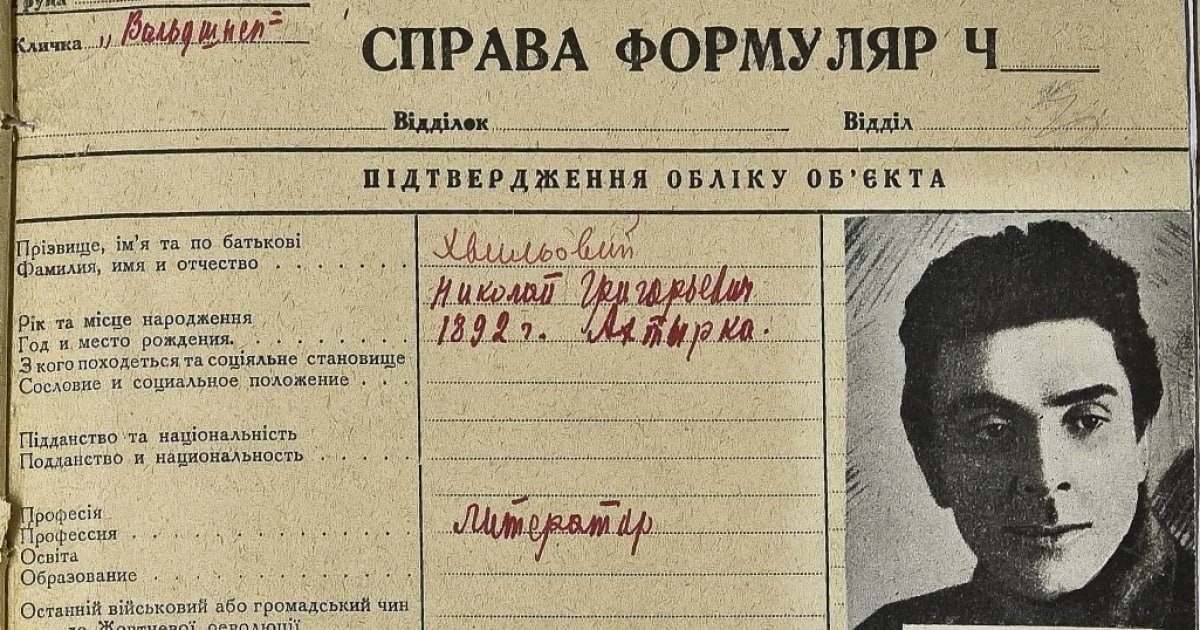 Група
Кличка „Вальдшнеп"
СПРАВА ФОРМУЛЯР Ч
Відділок Відділ
ПІДТВЕРДЖЕННЯ ОБЛІКУ ОБ'ЄКТА
Прізвище, ім'я та по батькові
Фамилия, имя и отчество
Хвильовий
Николай Григорьевич
Рік та місце народження
Год и место рождения.
1892 г. Ахтырка.
З кого походеться та соціяльне становище
Сословие и социальное положение
Підданство та національність
Подданство и национальность
Професія
Профессия
Литератор
Освіта
Образование
Останній військовий або громадський чин
до Жовтневої революції